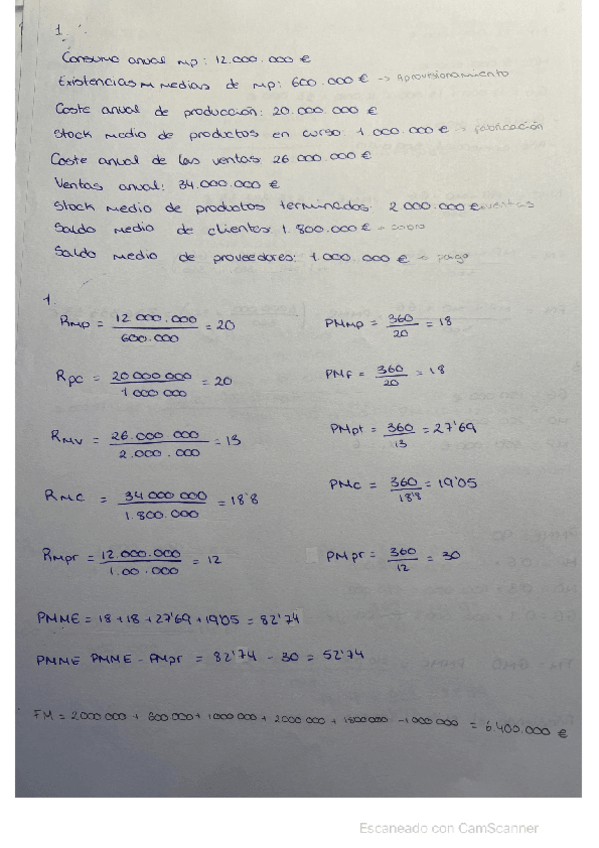 1.
Consumo anual mp: 12.000.000 €
Existencias m medias de mp: 600.000 € -> Aprovisionamiento
Coste anual de producción: 20.000.000 €
Stock medio de productos en curso 1 000.000 € -> fabricación
Coste anual de las ventas 26 000.000 €
Ventas anual: 34.000.000 €
Stock medio de productos terminados 2 000.000 € ventas
Saldo medio de clientes 1.800.000 € - cobro
Saldo medio de proveedores: 1.000.000 € - pago
1.
Rmp = 12 000.000 / 600.000 = 20 PMmp = 360 / 20 = 18
Rpc = 20 000 000 / 1 000 000 = 20 PMf = 360 / 20 = 18
Rmv = 26.000 000 / 2.000.000 = 13 PMpt = 360 / 13 = 27'69
Rmc = 34 000 000 / 1.800.000 = 18'8 PMc = 360 / 18'8 = 19'05
Rmpr = 12.000.000 / 1.00.000 = 12 PMpr = 360 / 12 = 30
PMME = 18 + 18 + 27'69 + 19'05 = 82'74
PMME PMME - PMpr = 82'74 - 30 = 52'74
FM = 2000 000 + 600 000 + 1000 000 + 2000 000 + 1800 000 - 1 000 000 = 6.400.000 €
Escaneado con CamScanner